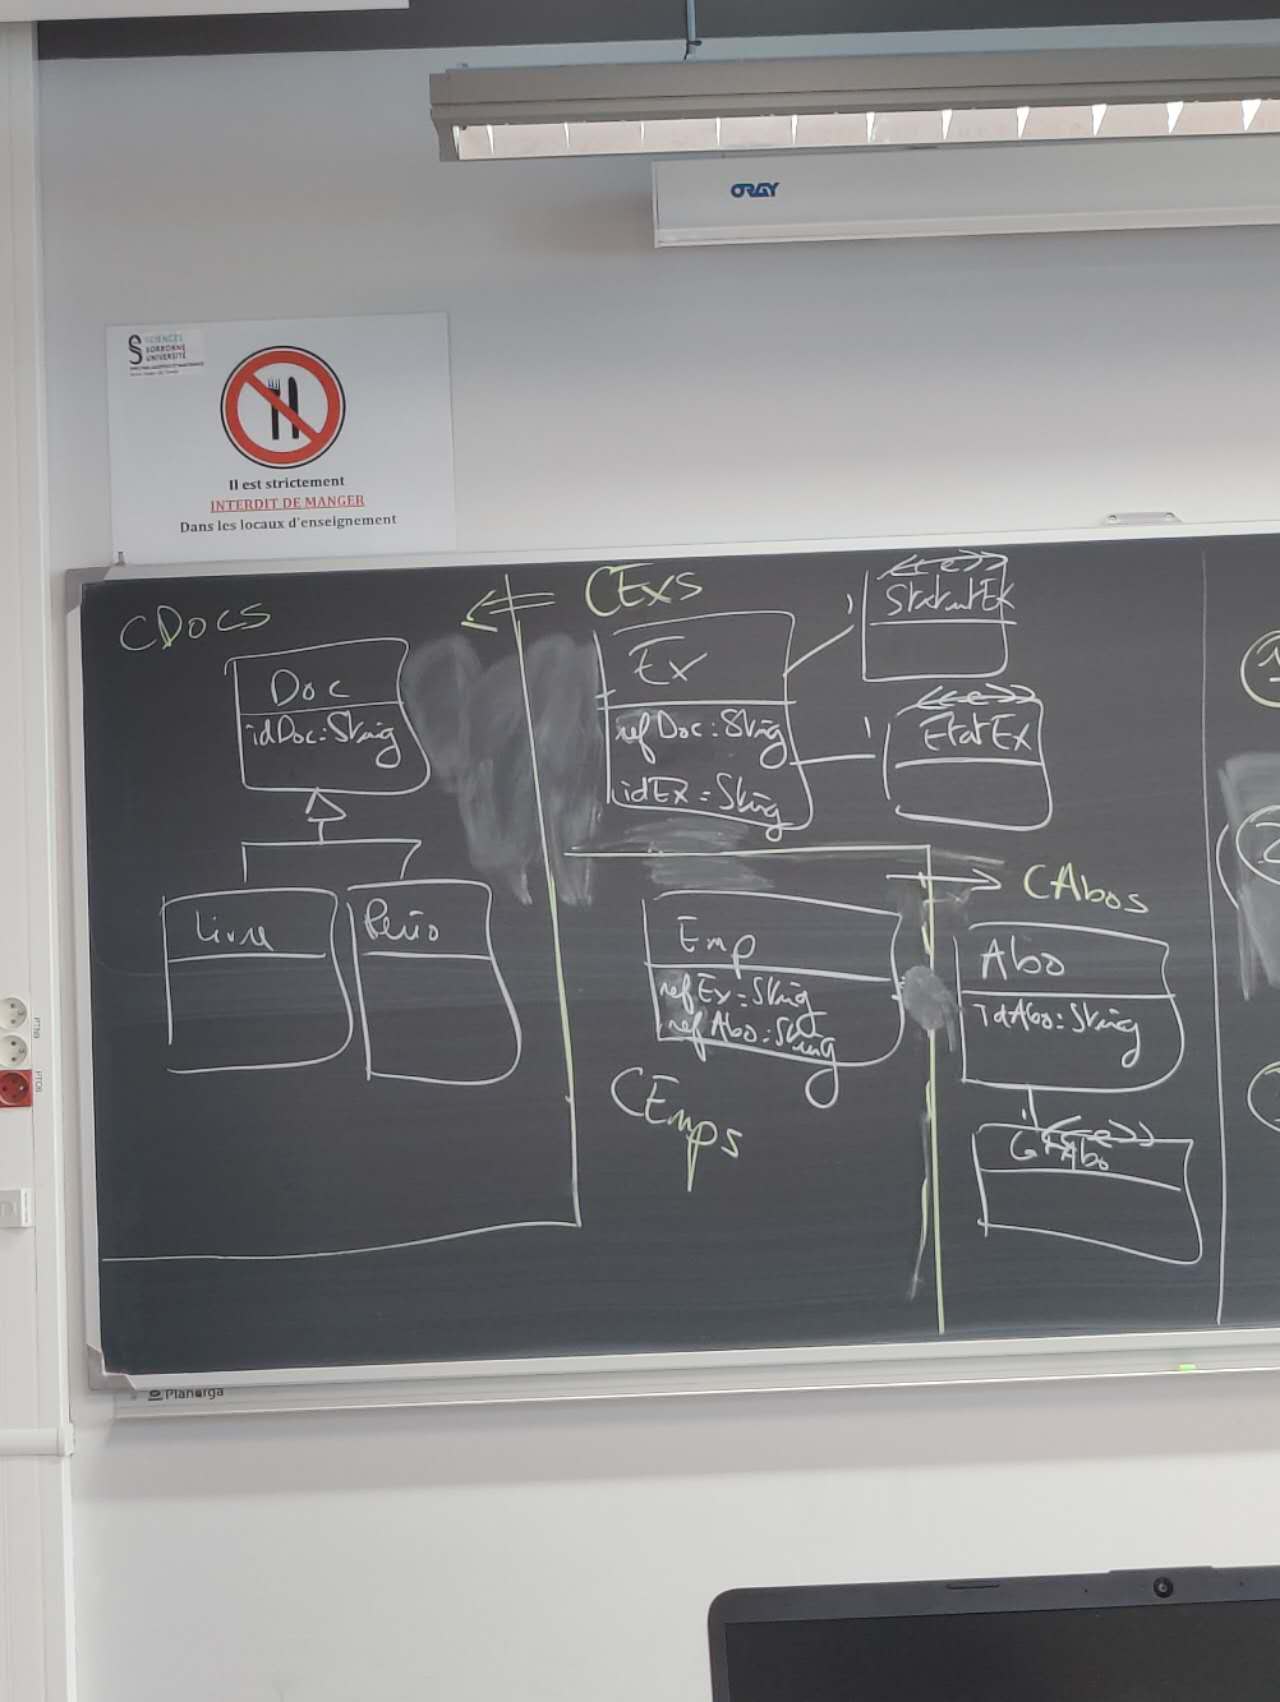 ORAY
SCIENCES
SORBONNE
UNIVERSITÉ
Il est strictement
INTERDIT DE MANGER
Dans les locaux d'enseignement
CDocs
Doc
idDoc: String
Livre
Pério
CExs
Ex
refDoc: String
idEx: String
1
<<e>>
StatutEx
1
<<e>>
EtatEx
Emp
refEx: String
refAbo: String
CEmps
CAbos
Abo
idAbo: String
1
<<e>>
1
2
Planorga
PTN9